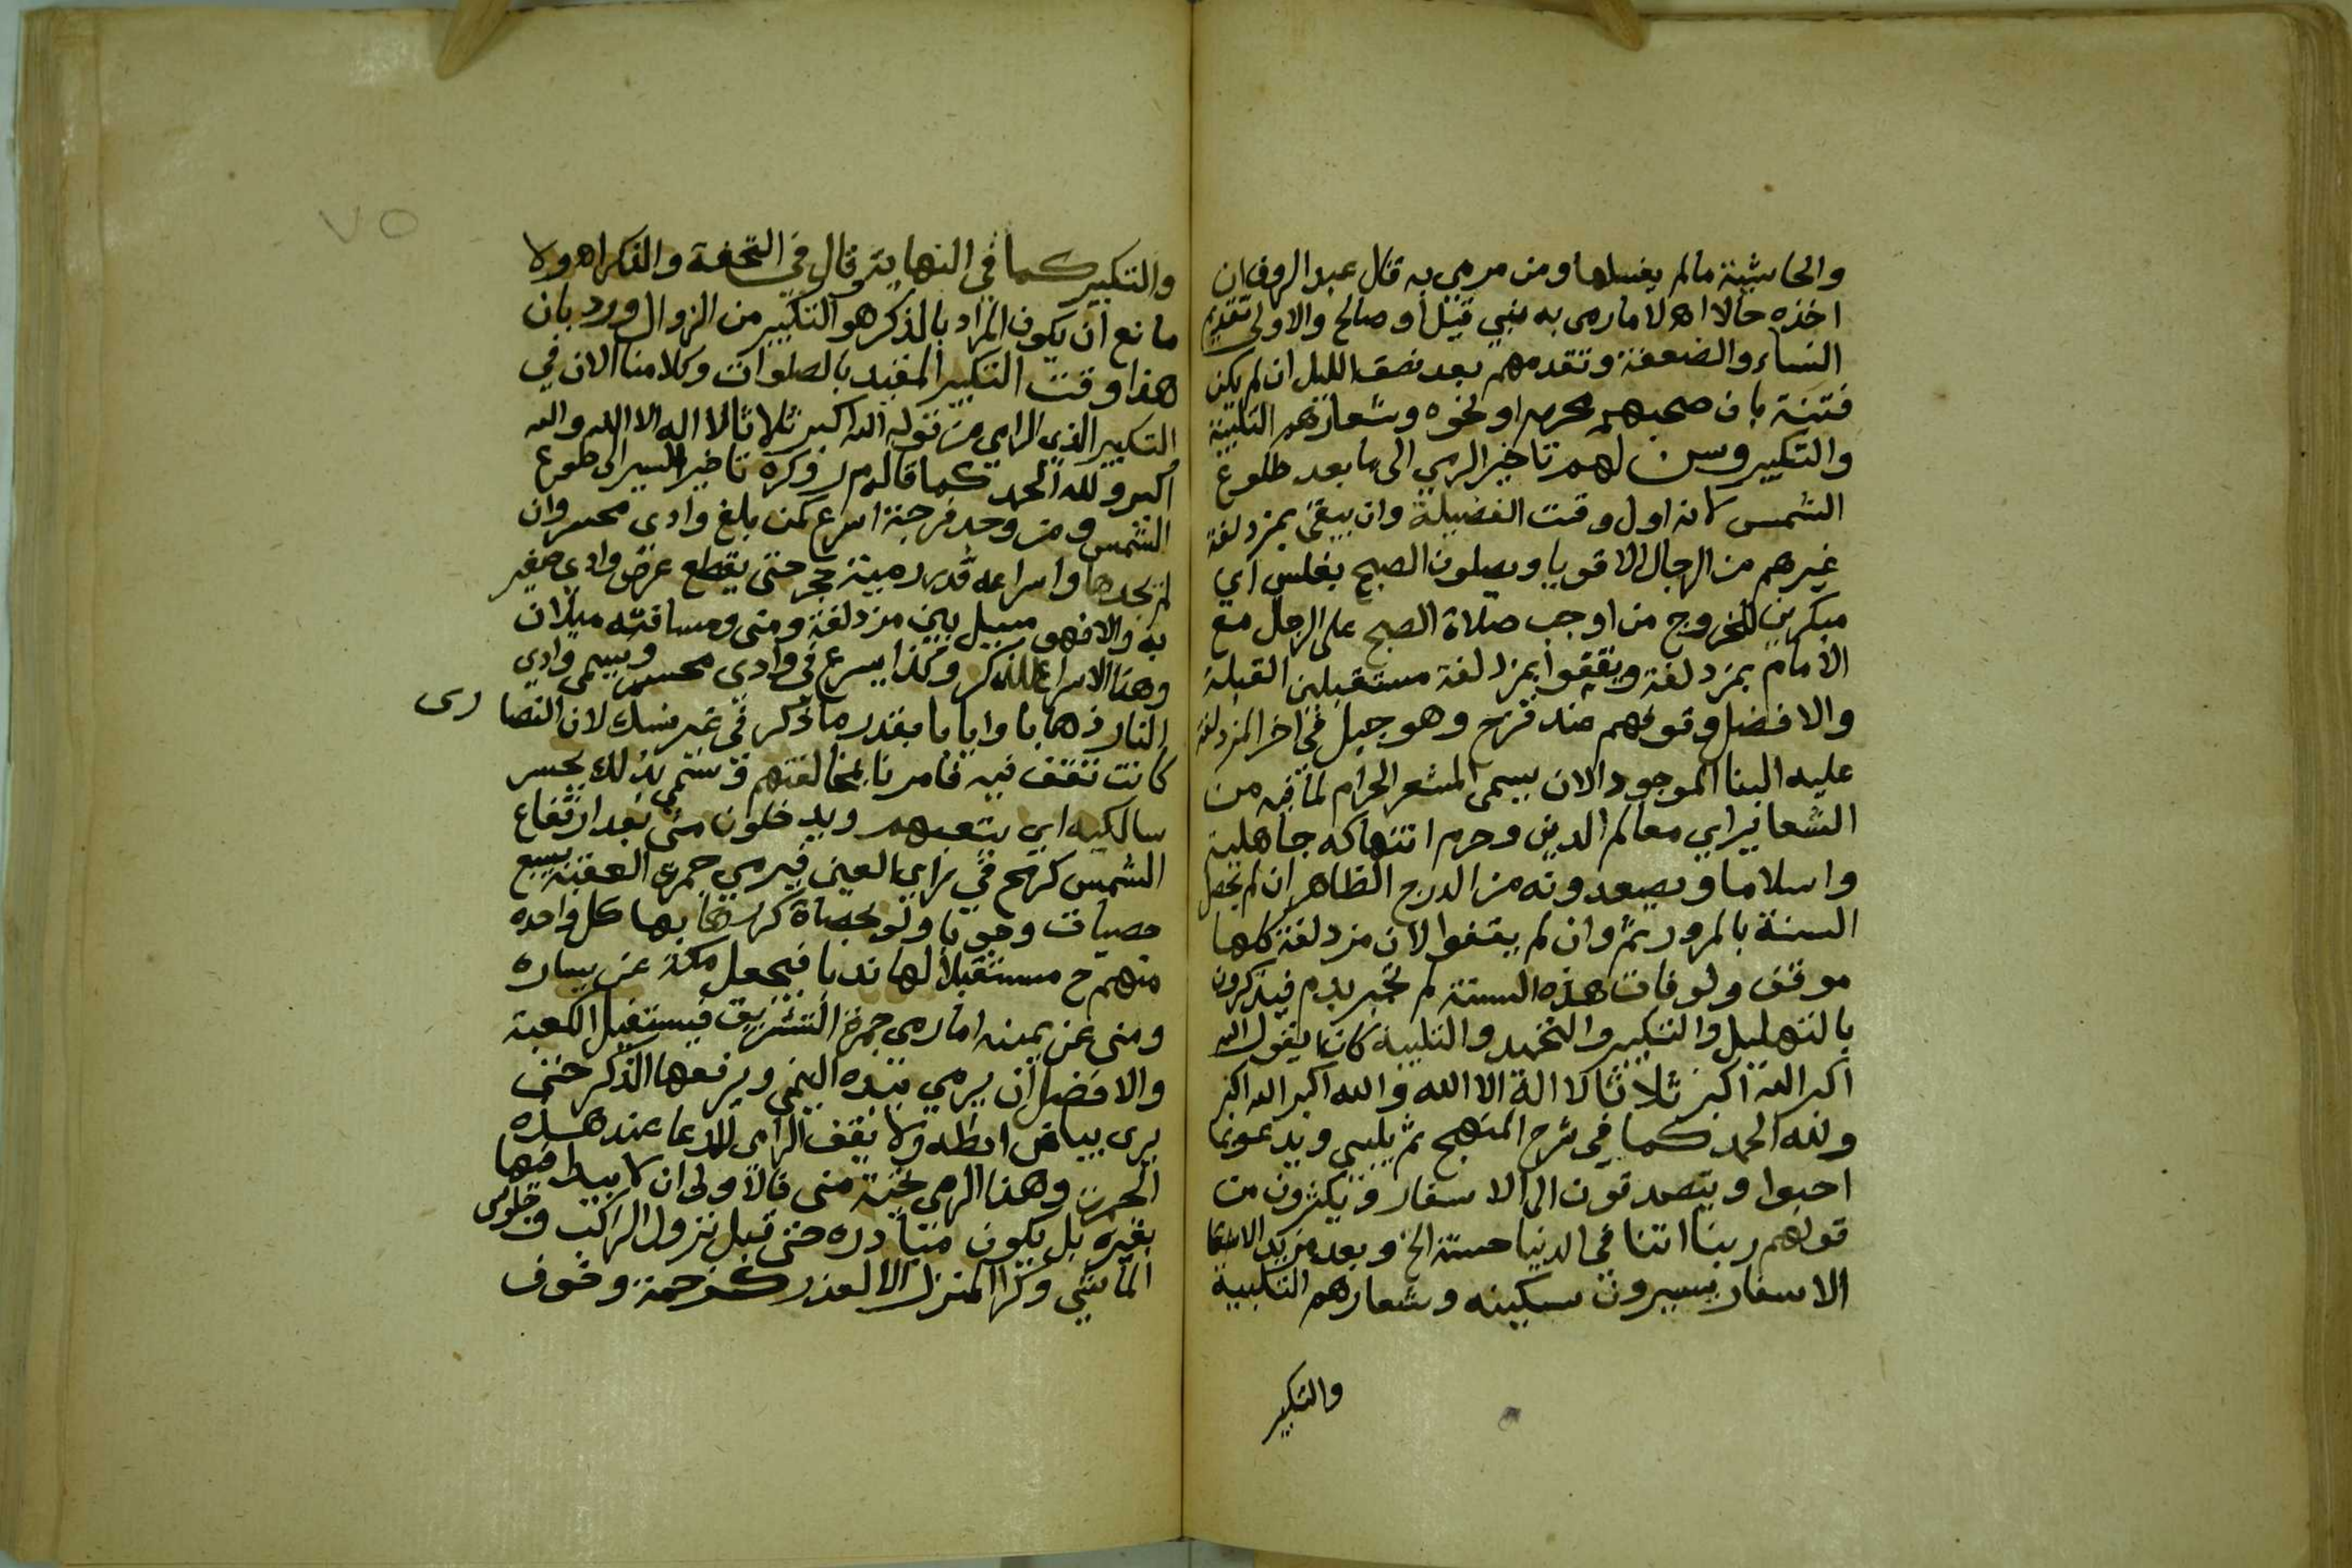 والحاشية مالم يغسلها ومن مرمي به قال عبد الروف ان
اخذه حالا اهـ لا مارمى به نبي قيل او صالح والاولى تقديم
النساء والضعفة وتقدمهم بعد نصف الليل ان لم يكن
فتنة بان صحبهم محرم او نحوه وشعارهم التلبية
والتكبير وسن لهم تاخير الرمي الى ما بعد طلوع
الشمس لانه اول وقت الفضيلة وان يبقى بمزدلفة
غيرهم من الرجال الاقويا ويصلون الصبح بغلس اي
مبكرين للخروج من اوجب صلاة الصبح على الرجل مع
الامام بمزدلفة ويقفوا بمزدلفة مستقبلين القبلة
والافضل وقوفهم عند قزح وهو جبل في اخر المزدلفة
عليه البنا الموجود الان يسمى المشعر الحرام لما فيه من
الشعاير اي معالم الدين وحرم انتهاكه جاهلية
واسلاما ويصعدونه من الدرج الظاهر ان لم تحصل
السنة بالمرور ثم وان لم يقفوا لان مزدلفة كلها
موقف ولو فات هذه السنة لم تجبر بدم فيذكرون
بالتهليل والتكبير والتحميد والتلبية كان يقول الله
اكبر الله اكبر ثلاثا لا الة الا الله والله اكبر الله اكبر
ولله الحمد كما في شرح المنهج ثم يلبي ويدعو بما
احبوا ويتصدقون الى الاسفار ويكثرون من
قولهم ربنا اتنا في الدنيا حسنة الخ وبعد مزيد
الاسفار يسيرون سكينه وشعارهم التلبية
والتكبير
٧٥
والتكبير كما في النهاية وقال في التحفة والذكر اهـ ولا
مانع ان يكون المراد بالذكر هو التكبير من الزوال ورد بان
هذا وقت التكبير المقيد بالصلوات وكلامنا الان في
التكبير الذي الرامي من قوله الله اكبر ثلاثا لا اله الا الله والله
اكبر ولله الحمد كما قاله م ر وكره تاخير السير الى طلوع
الشمس ومن وجد فرجة اسرع كمن بلغ وادى محسر وان
لم يجدها واسراعه قدر رمية حجر حتى يقطع عرض وادي صغير
به والا فهو مسيل بين مزدلفة ومنى ومسافته ميلان
وهذا الاسراع للذكر وكذا يسرع في وادى محسر ويسمى وادي
النار ذهابا وايابا بقدر ما ذكر في غير نسك لان النصارى
كانت تقف فيه فامرنا بمخالفتهم وسمي بذلك يحسر
سالكيه اي يتعبهم ويدخلون منى بعد ارتفاع
الشمس كرمح في راي العين فيرمي جمرة العقبة بسبع
حصيات وجوبا ولو بحصاة كررها بها كل واحده
منهم ح مستقبلا لها ندبا فيجعل مكة عن يساره
ومنى عن يمينه اما رمي جمرة التشريق فيستقبل الكعبة
والافضل ان يرمي بيده اليمنى ويرفعها الذكر حتى
يرى بياض ابطه ولا يقف الرامى للدعا عند هذه
الجمرة وهذا الرمي تحية منى فالاولى ان لا يبدا فيها
بغيره بل يكون مبادره حتى قبل نزول الراكب وجلوس
الماشي وكرا المنزل الا لعذر كزحمة وخوف